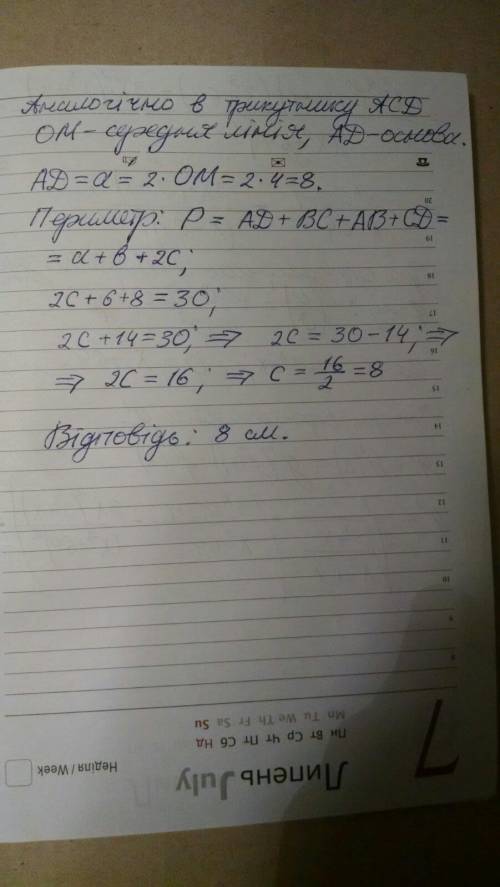 Аналогічно в трикутнику ACD
OM - середня лінія, AD - основа.
AD = a = 2 · OM = 2 · 4 = 8.
Периметр: P = AD + BC + AB + CD =
= a + b + 2c;
2c + 6 + 8 = 30;
2c + 14 = 30; ⇒ 2c = 30 - 14; ⇒
⇒ 2c = 16; ⇒ c = 16/2 = 8
Відповідь: 8 см.
20
19
18
17
16
15
14
13
12
11
10
9
8
7
Mn Tu We Th Fr Sa Su
Пн Вт Ср Чт Пт Сб Нд
Липень July
Неділя / Week